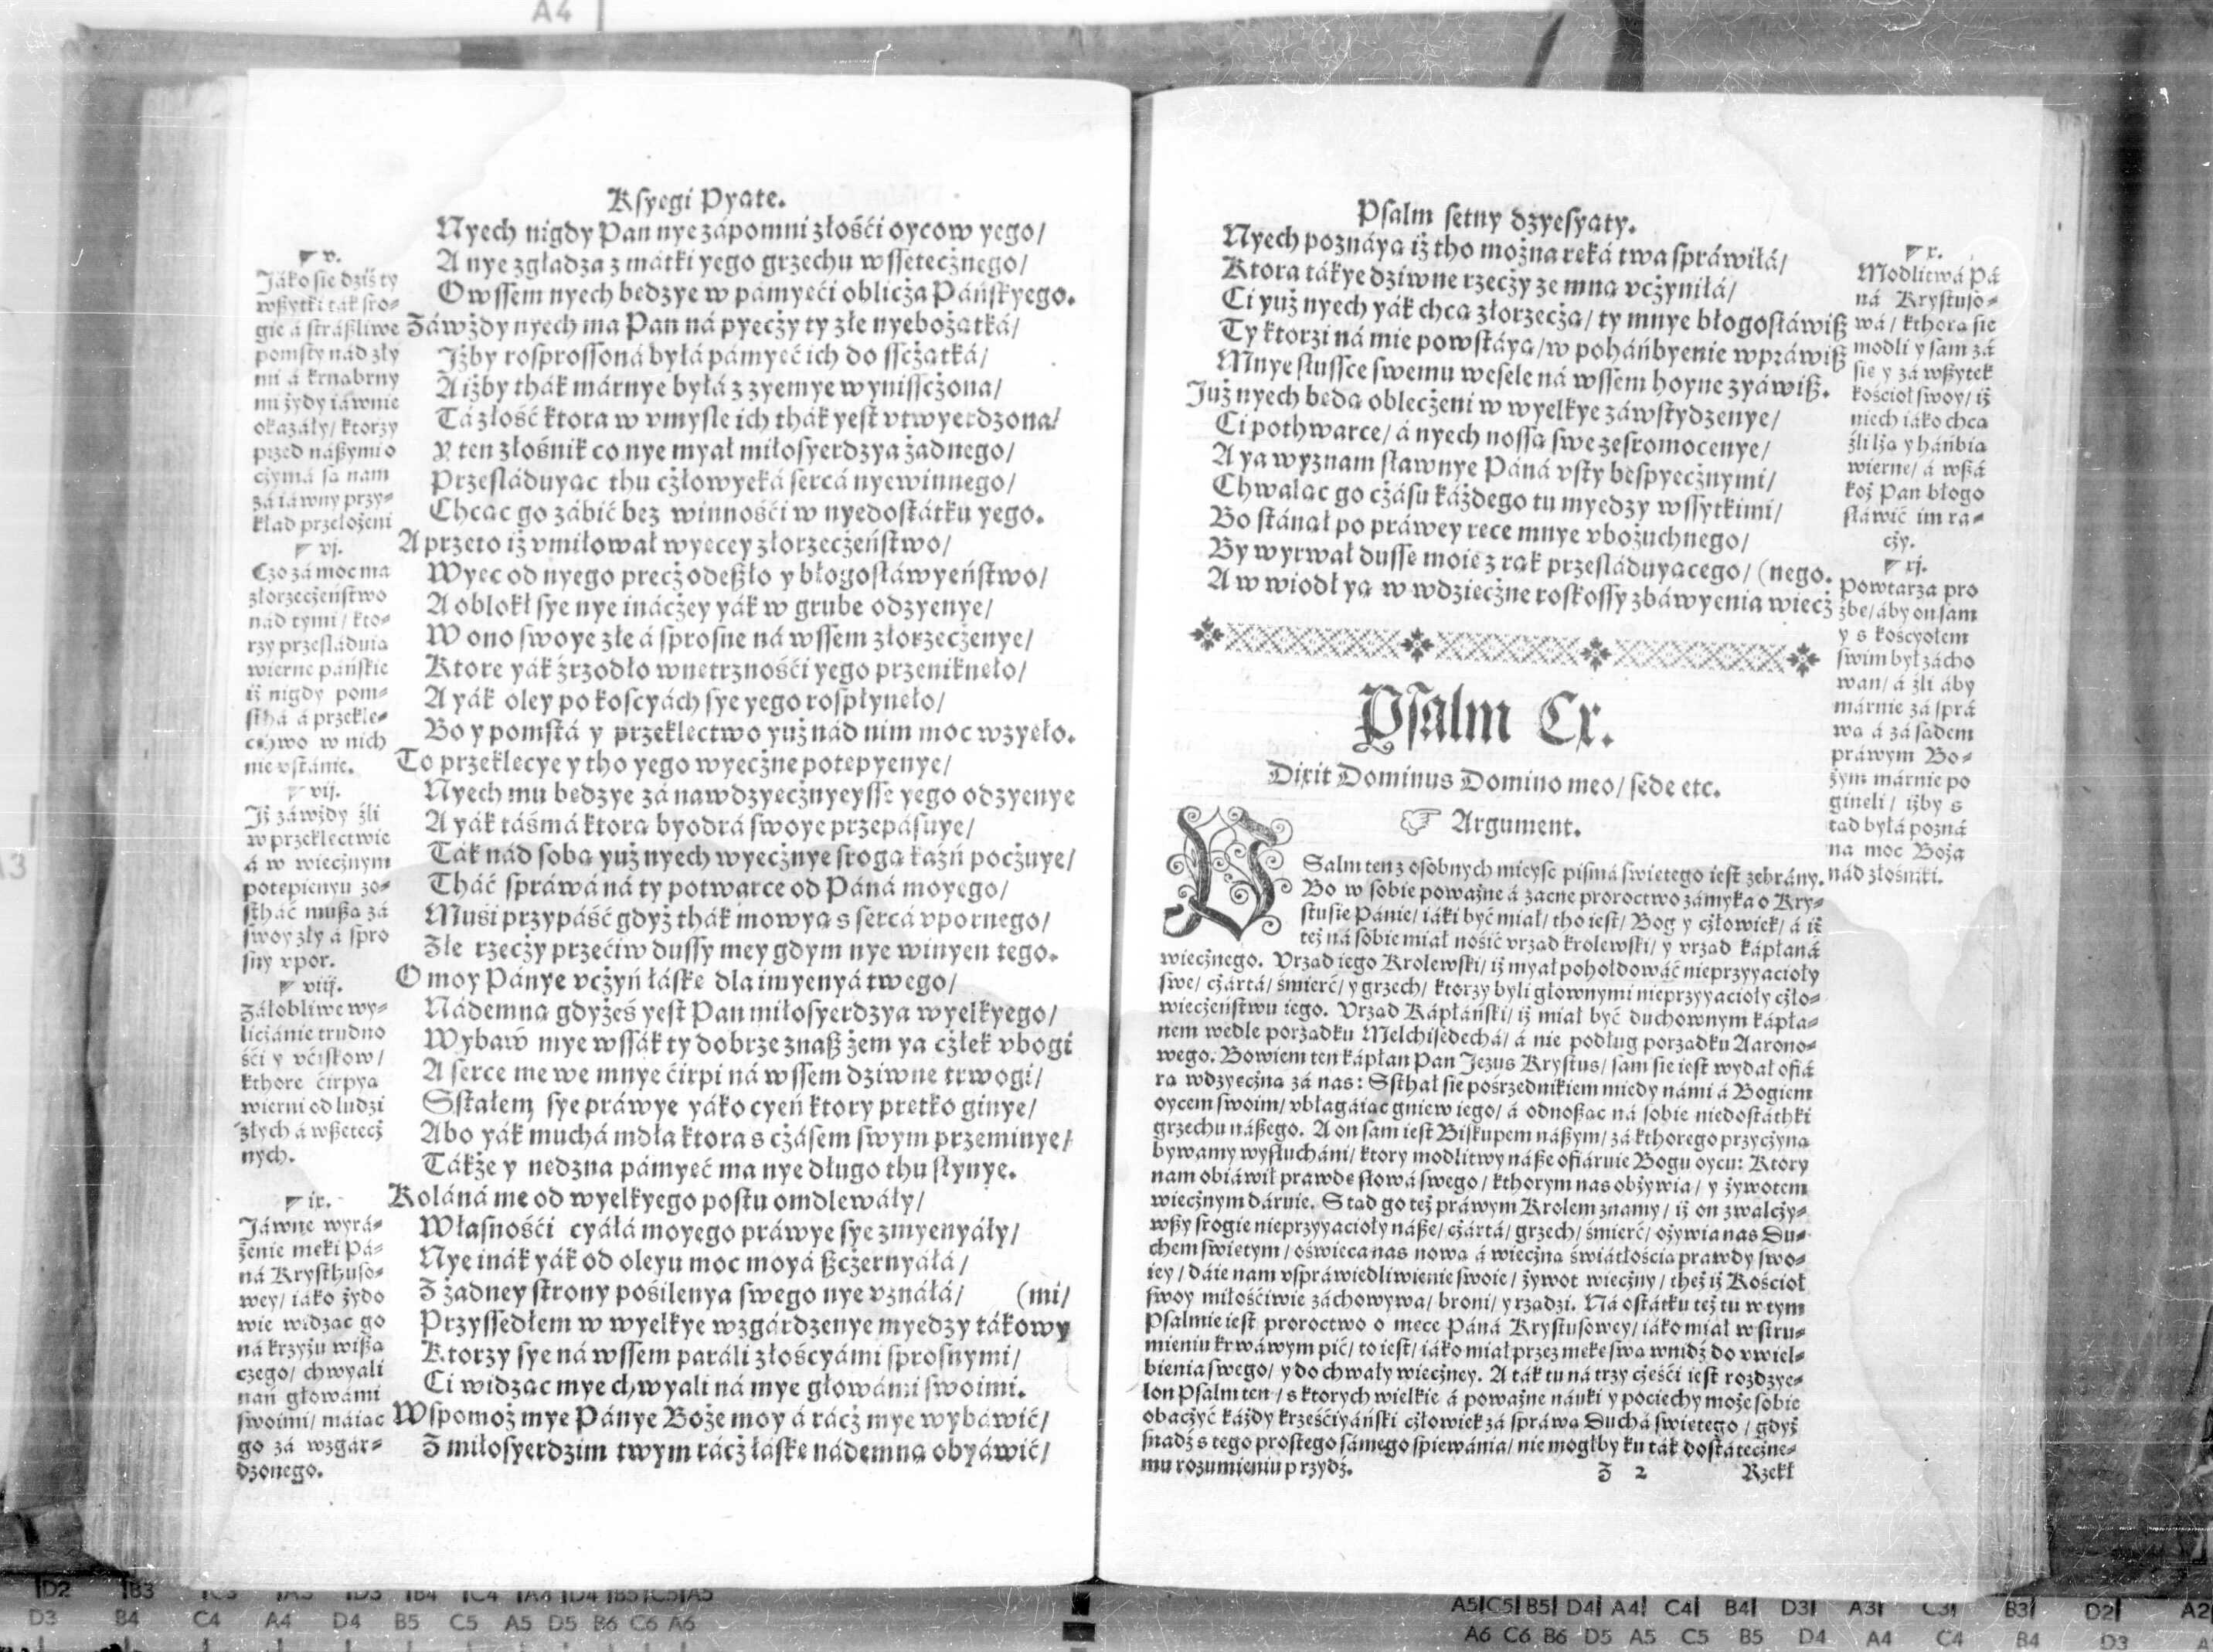 Ksyegi Pyate.
Nyech nigdy Pan nye zápomni złośći oycow yego/
A nye zgładza z mátki yego grzechu wssetecżnego/
Owssem nyech bedzye w pámyeći oblicża Páńskyego.
Záwżdy nyech ma Pan ná pyecży ty złe nyebożatká/
Jżby rosprossoná byłá pámyeć ich do sscżatká/
A iżby thák márnye byłá z zyemye wynisscżona/
Tá złość ktora w vmysle ich thák yest vtwyerdzona/
Y ten złośnik co nye myał miłosyerdzya żadnego/
Przesláduyac thu cżłowyeká sercá nyewinnego/
Chcac go zábić bez winnośći w nyedostátku yego.
A przeto iż vmiłował wyecey złorzecżeństwo/
Wyec od nyego precż odeßło y błogosłáwyeństwo/
A oblokł sye nye inácżey yák w grube odzyenye/
W ono swoye złe á sprosne ná wssem złorzecżenye/
Ktore yák źrzodło wnetrznośći yego przenikneło/
A yák oley po koscyách sye yego rospłyneło/
Bo y pomstá y przeklectwo yuż nád nim moc wzyeło.
To przeklecye y tho yego wyecżne potepyenye/
Nyech mu bedzye zá nawdzyecżnyeysse yego odzyenye
A yák táśmá ktora byodrá swoye przepásuye/
Ták nád soba yuż nyech wyecżnye sroga kaźń pocżuye/
Tháć spráwá ná ty potwarce od Páná moyego/
Muśi przypáść gdyż thák mowya s sercá vpornego/
Złe rzecży przećiw dussy mey gdym nye winyen tego.
O moy Pánye vcżyń łáske dla imyenyá twego/
Nádemna gdyżeś yest Pan miłosyerdzya wyelkyego/
Wybaw mye wssák ty dobrze znaß żem ya cżłek vbogi
A serce me we mnye ćirpi ná wssem dziwne trwogi/
Sstałem sye práwye yáko cyeń ktory pretko ginye/
Abo yák muchá mdła ktora s cżásem swym przeminye/
Tákże y nedzna pámyeć ma nye długo thu słynye.
Koláná me od wyelkyego postu omdlewáły/
Własnośći cyáłá moyego práwye sye zmyenyáły/
Nye inák yák od oleyu moc moyá ßcżernyáłá/
Z żadney strony pośilenya swego nye vznáłá/ (mi/
Przyssedłem w wyelkye wzgárdzenye myedzy tákowy
Ktorzy sye ná wssem paráli złośćyámi sprosnymi/
Ci widzac mye chwyali ná mye głowámi swoimi.
Wspomoż mye Pánye Boże moy á rácż mye wybáwić/
Z miłosyerdzim twym rácż łáske nádemna obyáwić/
v.
Jáko sie dziś ty
wßytki ták sro-
gie á stráßliwe
pomsty nád zły
mi á krnabrny
mi żydy iáwnie
okazáły/ ktorzy
przed náßymi o
cżymá sa nam
zá iáwny przy-
kład przełożeni
vj.
Czo zá moc ma
złorzecżeństwo
nád tymi/ kto-
rzy przesláduia
wierne páńskie
iż nigdy pom-
sthá á przekle-
cthwo w nich
nie vstánie.
vij.
Jż záwżdy źli
w przeklectwie
á w wiecżnym
potepienyu zo-
stháć mußa zá
swoy zły á spro
sny vpor.
viij.
Záłobliwe wy-
licżánie trudno
śći y vćiskow/
kthore ćirpya
wierni od ludzi
złych á wßetecż
nych.
ix.
Jáwne wyrá-
żenie meki Pá-
ná Krysthuso-
wey/ iáko żydo
wie widzac go
ná krzyżu wißa
czego/ chwyali
nań głowámi
swoimi/ máiac
go zá wzgár-
dzonego.
Psalm setny dzyesyaty.
Nyech poznáya iż tho można reká twa spráwiłá/
Ktora tákye dziwne rzecży ze mna vcżyniłá/
Ci yuż nyech yák chca złorzecża/ ty mnye błogosłáwiß
Ty ktorzi ná mie powstáya/ w poháńbyenie wpráwiß
Mnye słussce swemu wesele ná wssem hoyne zyáwiß.
Już nyech beda oblecżeni w wyelkye záwstydzenye/
Ci pothwarce/ á nyech nossa swe zesromocenye/
A ya wyznam sławnye Páná vsty bespyecżnymi/
Chwalac go cżásu káżdego tu myedzy wssytkimi/
Bo stánał po práwey rece mnye vbożuchnego/
By wyrwał dusse moie z rak przesláduyacego/ (nego.
A w wiodł ya w wdziecżne roskossy zbáwyenia wiecż
Psalm Cx.
Dixit Dominus Domino meo/ sede etc.
☞ Argument.
PSalm ten z osobnych mieysc pismá swietego iest zebrány.
Bo w sobie poważne á zacne proroctwo zámyka o Kry-
stusie Pánie/ iáki być miał/ tho iest/ Bog y cżłowiek/ á iż
też ná sobie miał nośić vrzad krolewski/ y vrzad kápłaná
wiecżnego. Vrzad iego Krolewski/ iż myał pohołdowáć nieprzyyacioły
swe/ cżártá/ śmierć/ y grzech/ ktorzy byli głownymi nieprzyyacioły cżło-
wiecżeństwu iego. Vrzad Kápłáński/ iż miał być duchownym kápła-
nem wedle porzadku Melchisedechá/ á nie podług porzadku Aarono-
wego. Bowiem ten kápłan Pan Jezus Krystus/ sam sie iest wydał ofiá
ra wdzyecżna zá nas: Ssthał sie pośrzednikiem miedy námi á Bogiem
oycem swoim/ vbłagáiac gniew iego/ á odnoßac ná sobie niedostáthki
grzechu náßego. A on sam iest Biskupem náßym/ zá kthorego przycżyna
bywamy wysłucháni/ ktory modlitwy náße ofiáruie Bogu oycu: Ktory
nam obiáwił prawde słowá swego/ kthorym nas obżywia/ y żywotem
wiecżnym dáruie. Stad go też práwym Krolem znamy/ iż on zwalcży-
wßy srogie nieprzyyacioły náße/ cżártá/ grzech/ śmierć/ ożywia nas Du-
chem swietym/ oświeca nas nowa á wiecżna świátłościa prawdy swo-
iey/ dáie nam vspráwiedliwienie swoie/ żywot wiecżny/ theż iż Kościoł
swoy miłośćiwie záchowywa/ broni/ y rzadzi. Ná ostátku też tu w tym
Psalmie iest proroctwo o mece Páná Krystusowey/ iáko miał w stru-
mieniu krwáwym pić/ to iest/ iáko miał przez meke swa wnidź do vwiel-
bienia swego/ y do chwały wiecżney. A ták tu ná trzy cżeśći iest rozdzye-
lon Psalm ten/ s ktorych wielkie á poważne náuki y pociechy może sobie
obacżyć káżdy krześćiyáński cżłowiek zá spráwa Duchá swietego/ gdyż
snadź s tego prostego sámego spiewánia/ nie mogłby ku ták dostátecżne-
mu rozumieniu przydź.
Z 2 Rzekł
x.
Modlitwá Pá
ná Krystuso-
wá/ kthora sie
modli y sam zá
sie y zá wßytek
kościoł swoy/ iż
niech iáko chca
źli lża y háńbia
wierne/ á wßá
koż Pan błogo
słáwić im ra-
cży.
xj.
Powtarza pro
źbe/ áby on sam
y s kościołem
swim był zácho
wan/ á źli áby
márnie zá sprá
wa á zá sadem
práwym Bo-
żym márnie po
gineli/ iżby s
tad byłá pozná
na moc Boża
nád złośniki.
A4
A3
D2 B3 C3 A3 D3 B4 C4 A4 D4 B5 C5 A5
D3 B4 C4 A4 D4 B5 C5 A5 D5 B6 C6 A6
A5 C5 B5 D4 A4 C4 B4 D3 A3 C3 B3 D2 A2
A6 C6 B6 D5 A5 C5 B5 D4 A4 C4 B4 D3